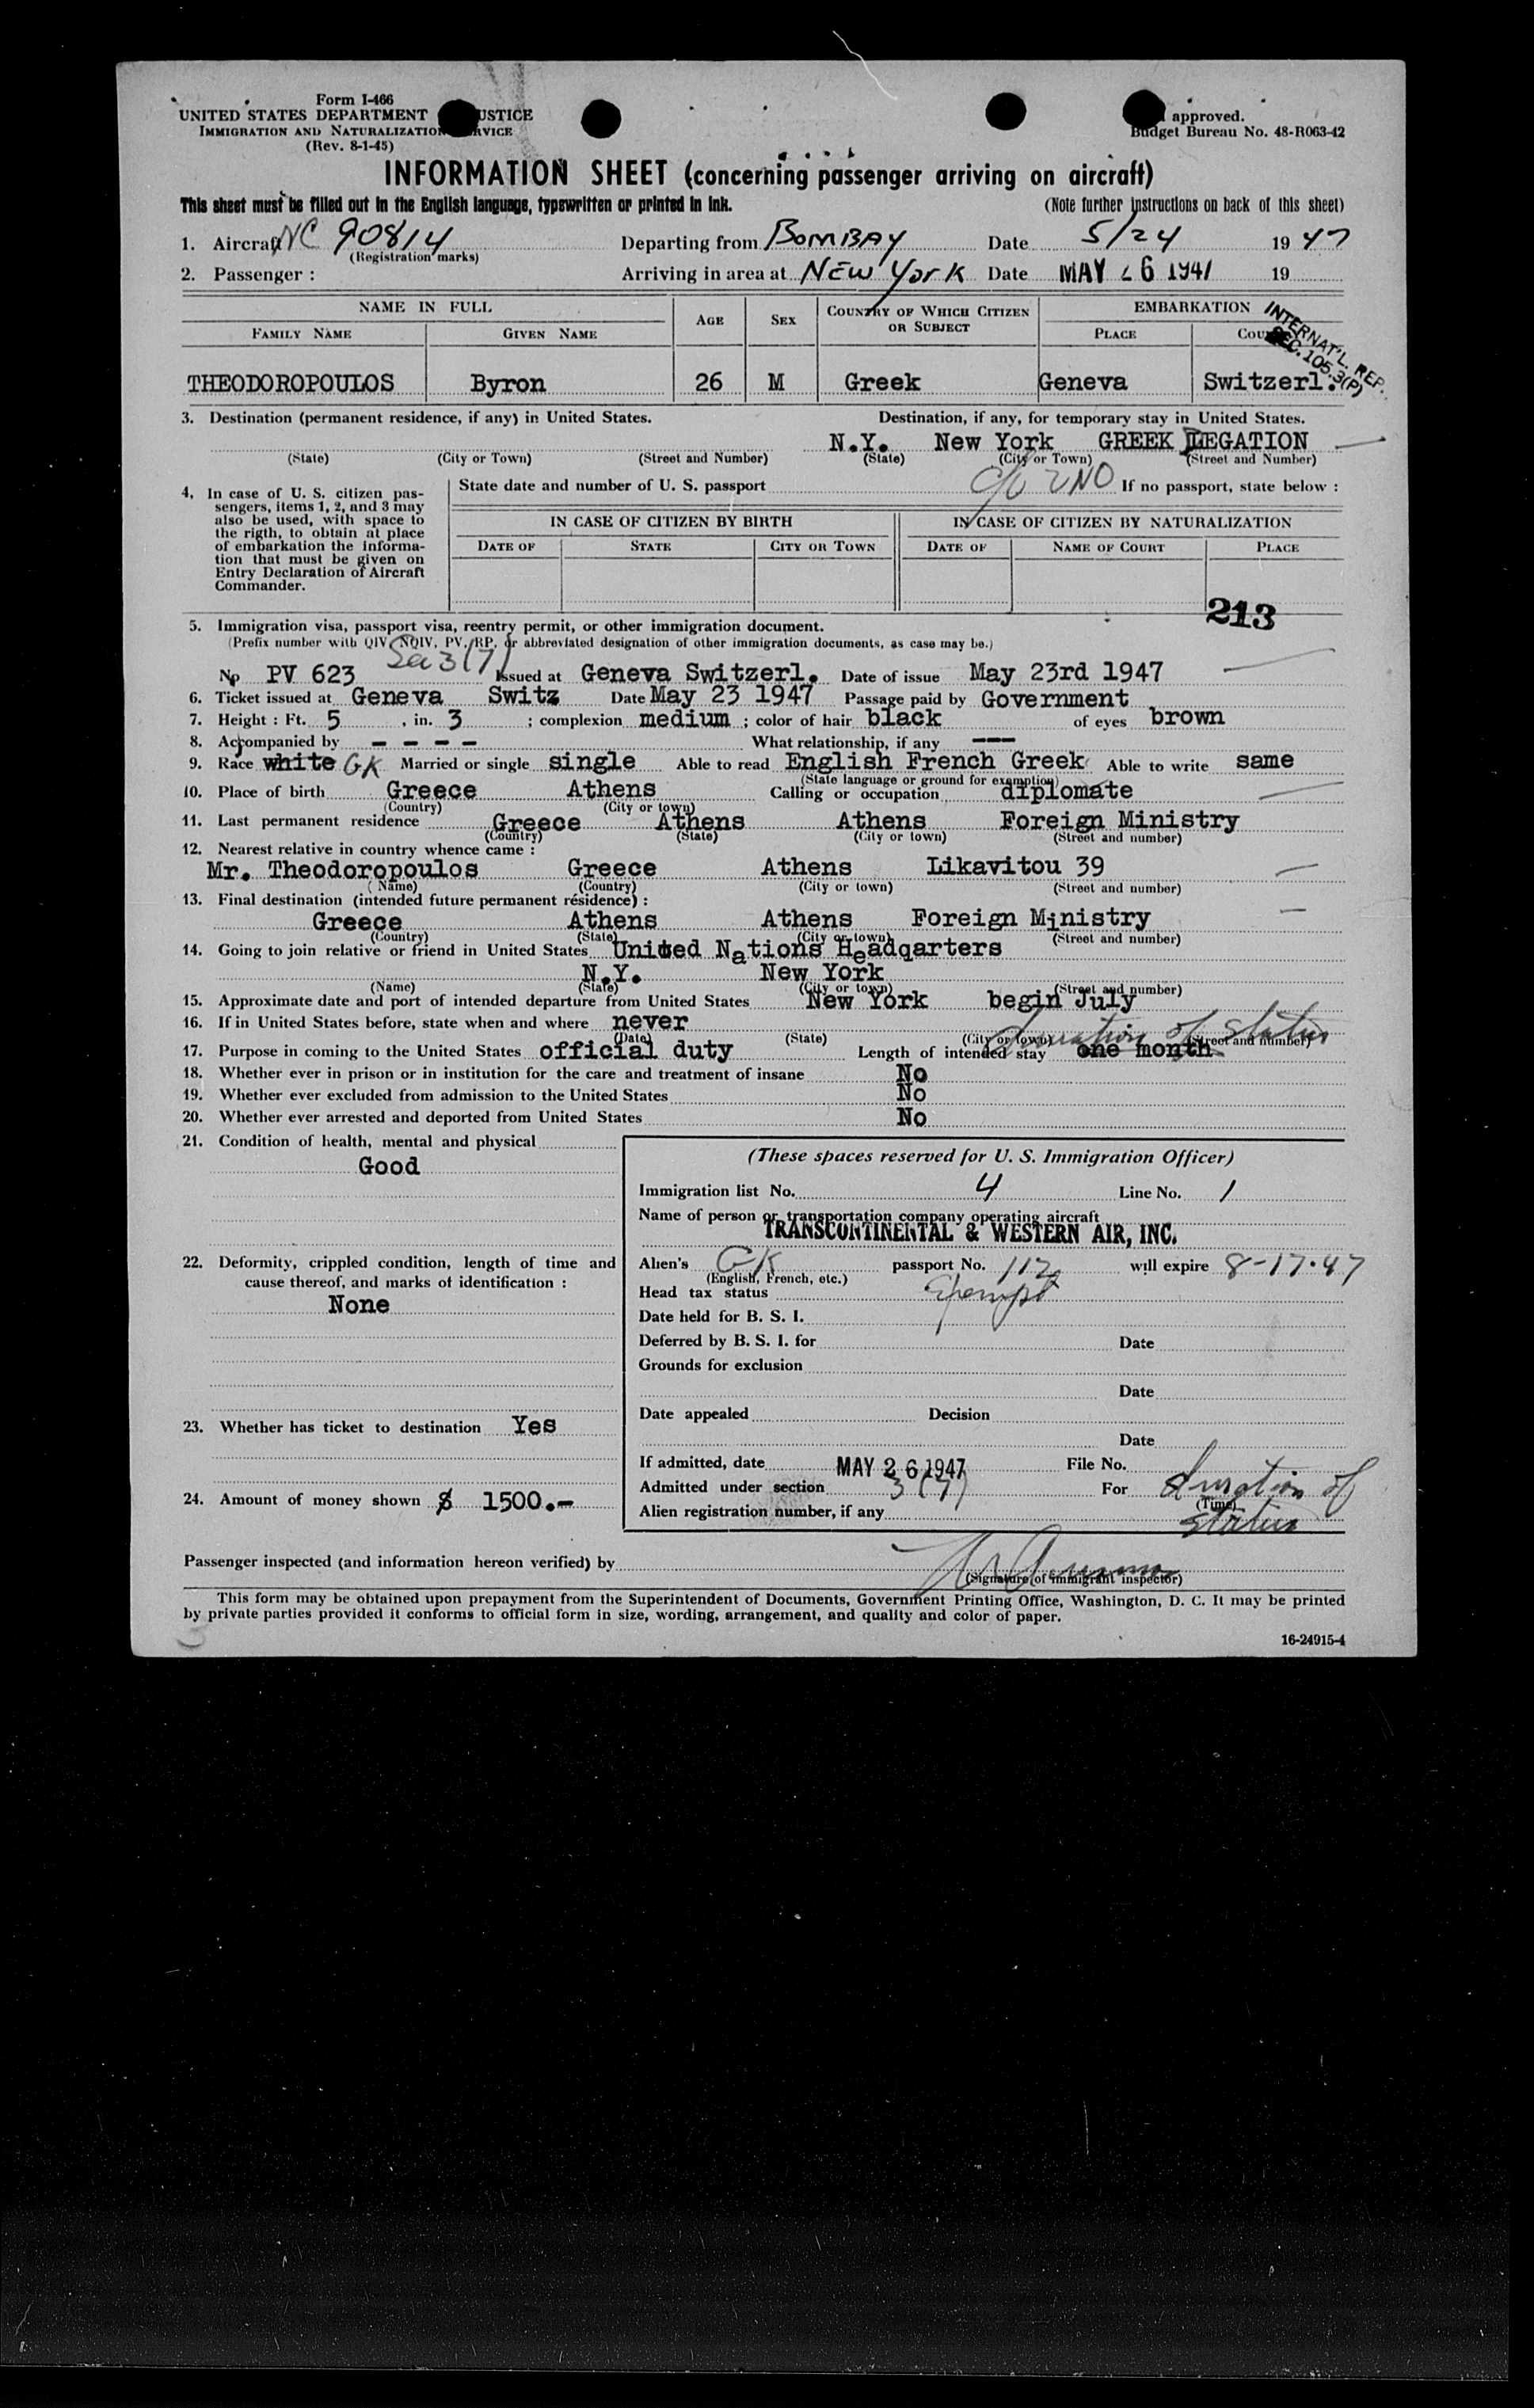 Form I-466
UNITED STATES DEPARTMENT USTICE
IMMIGRATION AND NATURALIZATION RVICE
(Rev. 8-1-45)
approved.
Budget Bureau No. 48-R063-42
INFORMATION SHEET (concerning passenger arriving on aircraft)
This sheet must be filled out in the English language, typewritten or printed in ink. (Note further instructions on back of this sheet)
1. Aircraft NC 90814 Departing from BOMBAY Date 5/24 19 47
(Registration marks)
2. Passenger : Arriving in area at NEW York Date MAY 26 1947 19
NAME IN FULL AGE SEX COUNTRY OF WHICH CITIZEN OR SUBJECT EMBARKATION
FAMILY NAME GIVEN NAME PLACE COU
INTERNAT'L. REP.
SEC. 105.3(P)
THEODOROPOULOS Byron 26 M Greek Geneva Switzerl.
3. Destination (permanent residence, if any) in United States. Destination, if any, for temporary stay in United States.
N.Y. New York GREEK LEGATION
(State) (City or Town) (Street and Number) (State) (City or Town) (Street and Number)
c/o UNO
4. In case of U. S. citizen passengers, items 1, 2, and 3 may also be used, with space to the rigth, to obtain at place of embarkation the information that must be given on Entry Declaration of Aircraft Commander.
State date and number of U. S. passport If no passport, state below :
IN CASE OF CITIZEN BY BIRTH IN CASE OF CITIZEN BY NATURALIZATION
DATE OF STATE CITY OR TOWN DATE OF NAME OF COURT PLACE
213
5. Immigration visa, passport visa, reentry permit, or other immigration document.
(Prefix number with QIV, NQIV, PV, RP, or abbreviated designation of other immigration documents, as case may be.)
Sec 3(7)
No PV 623 Issued at Geneva Switzerl. Date of issue May 23rd 1947
6. Ticket issued at Geneva Switz Date May 23 1947 Passage paid by Government
7. Height : Ft. 5 , in. 3 ; complexion medium ; color of hair black of eyes brown
8. Accompanied by - - - - What relationship, if any ---
9. Race white GK Married or single single Able to read English French Greek Able to write same
(State language or ground for exemption)
10. Place of birth Greece Athens Calling or occupation diplomate
(Country) (City or town)
11. Last permanent residence Greece Athens Athens Foreign Ministry
(Country) (State) (City or town) (Street and number)
12. Nearest relative in country whence came :
Mr. Theodoropoulos Greece Athens Likavitou 39
(Name) (Country) (City or town) (Street and number)
13. Final destination (intended future permanent résidence) :
Greece Athens Athens Foreign Ministry
(Country) (State) (City or town) (Street and number)
14. Going to join relative or friend in United States United Nations Headqarters
N.Y. New York
(Name) (State) (City or town) (Street and number)
15. Approximate date and port of intended departure from United States New York begin July
16. If in United States before, state when and where never
(Date) (State) (City or town) (Street and number)
duration of status
17. Purpose in coming to the United States official duty Length of intended stay one month
18. Whether ever in prison or in institution for the care and treatment of insane No
19. Whether ever excluded from admission to the United States No
20. Whether ever arrested and deported from United States No
21. Condition of health, mental and physical
Good
22. Deformity, crippled condition, length of time and cause thereof, and marks of identification :
None
23. Whether has ticket to destination Yes
24. Amount of money shown $ 1500.-
(These spaces reserved for U. S. Immigration Officer)
Immigration list No. 4 Line No. 1
Name of person or transportation company operating aircraft
TRANSCONTINENTAL & WESTERN AIR, INC.
Alien's GK passport No. 112 will expire 8-17-47
(English, French, etc.)
Head tax status Exempt
Date held for B. S. I.
Deferred by B. S. I. for Date
Grounds for exclusion
Date
Date appealed Decision
Date
If admitted, date MAY 26 1947 File No.
Admitted under section 3(7) For duration of status
(Time)
Alien registration number, if any
Passenger inspected (and information hereon verified) by
(Signature of immigrant inspector)
This form may be obtained upon prepayment from the Superintendent of Documents, Government Printing Office, Washington, D. C. It may be printed
by private parties provided it conforms to official form in size, wording, arrangement, and quality and color of paper.
16-24915-4